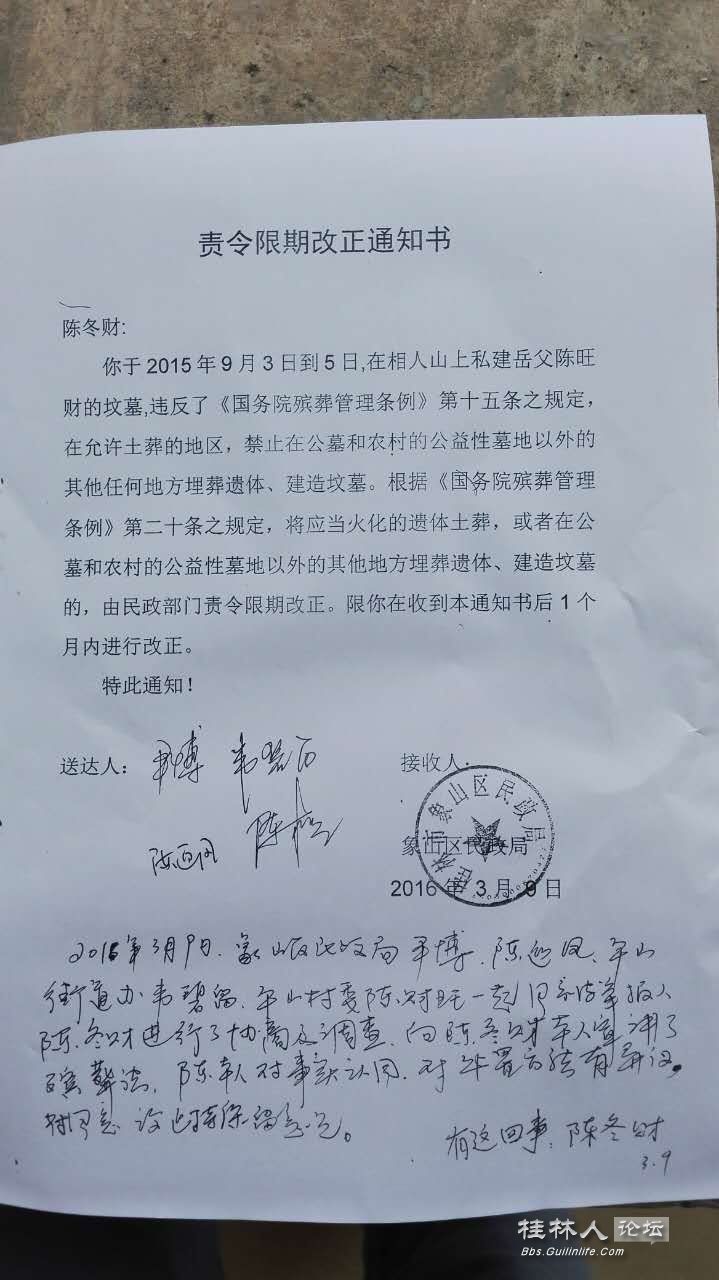 责令限期改正通知书
陈冬财:
你于2015年9月3日到5日,在相人山上私建岳父陈旺
财的坟墓,违反了《国务院殡葬管理条例》第十五条之规定,
在允许土葬的地区，禁止在公墓和农村的公益性墓地以外的
其他任何地方埋葬遗体、建造坟墓。根据《国务院殡葬管理
条例》第二十条之规定，将应当火化的遗体土葬，或者在公
墓和农村的公益性墓地以外的其他地方埋葬遗体、建造坟墓
的，由民政部门责令限期改正。限你在收到本通知书后1个
月内进行改正。
特此通知！
送达人：
接收人：
桂林市象山区民政局
象山区民政局
2016年3月9日
2016年3月9日.象山区民政局 博.陈 凤.平山
街道办韦碧 .平山村委陈 旺一起
陈冬财进行了协商及调查.向陈冬财本人宣讲了
殡葬法.陈本人对事实认同.对 有异议。
保留意见。
有这回事.陈冬财
3.9
桂林人论坛
Bbs.Guilinlife.com